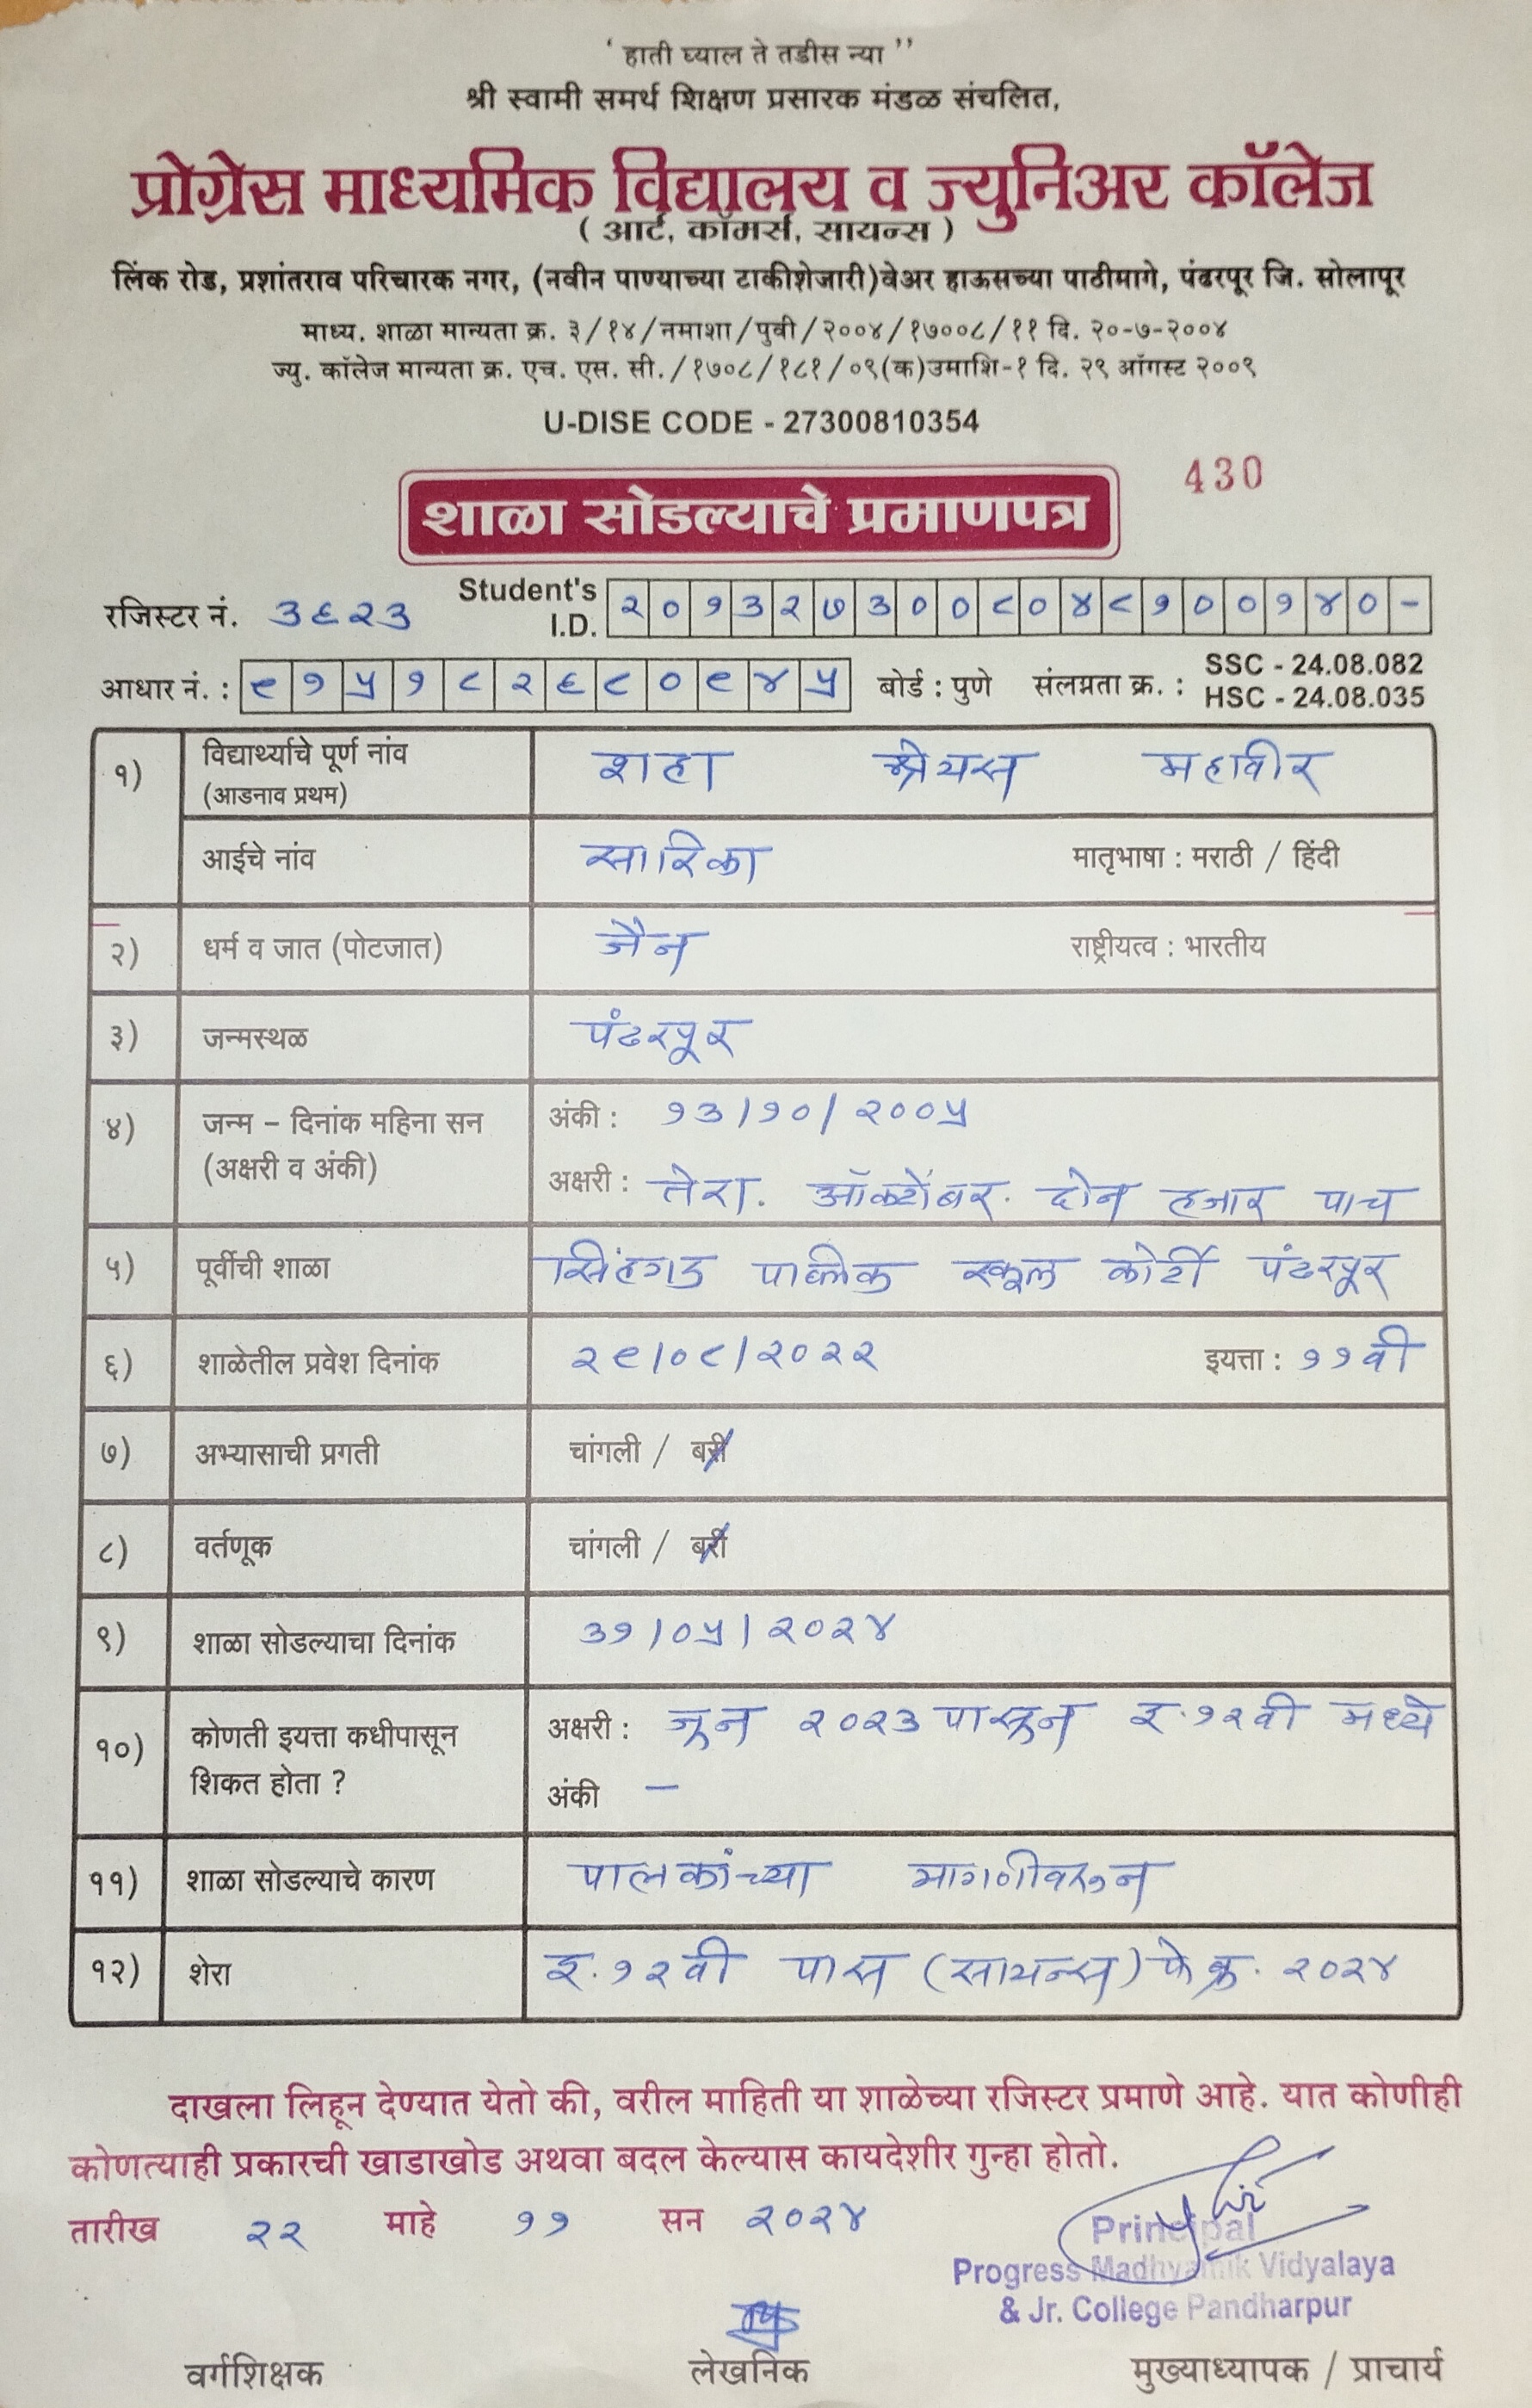 ‘ हाती घ्याल ते तडीस न्या ’’
श्री स्वामी समर्थ शिक्षण प्रसारक मंडळ संचलित,
प्रोग्रेस माध्यमिक विद्यालय व ज्युनिअर कॉलेज
( आर्ट, कॉमर्स, सायन्स )
लिंक रोड, प्रशांतराव परिचारक नगर, (नवीन पाण्याच्या टाकीशेजारी)वेअर हाऊसच्या पाठीमागे, पंढरपूर जि. सोलापूर
माध्य. शाळा मान्यता क्र. ३/१४/नमाशा/पुवी/२००४/१७००८/११ दि. २०-७-२००४
ज्यु. कॉलेज मान्यता क्र. एच. एस. सी./१७०८/१८१/०९(क)उमाशि-१ दि. २९ ऑगस्ट २००९
U-DISE CODE - 27300810354
430
शाळा सोडल्याचे प्रमाणपत्र
रजिस्टर नं. ३६२३ Student's I.D. २०१३२७३००८०४८१००१४० -
आधार नं. : ९१५१८२६८०९४५ बोर्ड : पुणे संलग्नता क्र. : SSC - 24.08.082
HSC - 24.08.035
१) विद्यार्थ्याचे पूर्ण नांव शहा श्रेयस महावीर
(आडनाव प्रथम)
आईचे नांव सारिका मातृभाषा : मराठी / हिंदी
२) धर्म व जात (पोटजात) जैन राष्ट्रीयत्व : भारतीय
३) जन्मस्थळ पंढरपूर
४) जन्म – दिनांक महिना सन अंकी : १३/१०/२००५
(अक्षरी व अंकी) अक्षरी : तेरा. ऑक्टोंबर. दोन हजार पाच
५) पूर्वीची शाळा सिंहगड पाब्लिक स्कूल कोर्टी पंढरपूर
६) शाळेतील प्रवेश दिनांक २९/०८/२०२२ इयत्ता : ११वी
७) अभ्यासाची प्रगती चांगली / बरी
८) वर्तणूक चांगली / बरी
९) शाळा सोडल्याचा दिनांक ३१/०५/२०२४
१०) कोणती इयत्ता कधीपासून अक्षरी : जून २०२३ पासून इ.१२वी मध्ये
शिकत होता ? अंकी –
११) शाळा सोडल्याचे कारण पालकांच्या मागणीवरून
१२) शेरा इ.१२वी पास (सायन्स) फेब्रु. २०२४
दाखला लिहून देण्यात येतो की, वरील माहिती या शाळेच्या रजिस्टर प्रमाणे आहे. यात कोणीही
कोणत्याही प्रकारची खाडाखोड अथवा बदल केल्यास कायदेशीर गुन्हा होतो.
तारीख २२ माहे ११ सन २०२४
Principal
Progress Madhyamik Vidyalaya
& Jr. College Pandharpur
वर्गशिक्षक लेखनिक मुख्याध्यापक / प्राचार्य